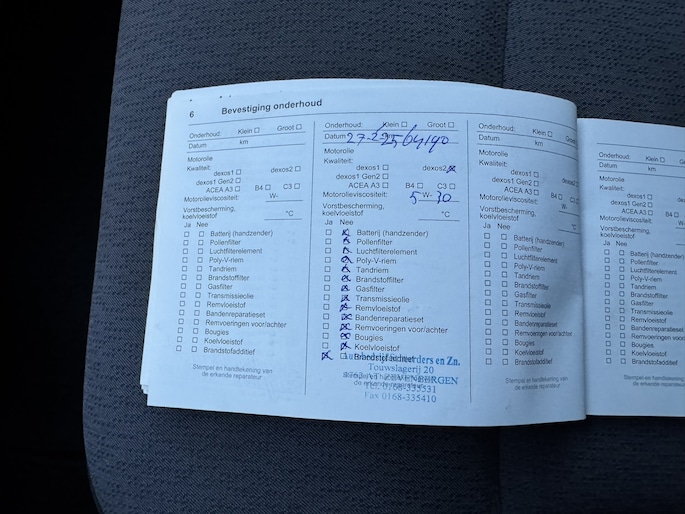 6 Bevestiging onderhoud
Onderhoud: Klein ☐ Groot ☐
Datum km
Motorolie
Kwaliteit:
dexos1 ☐ dexos2 ☐
dexos1 Gen2 ☐
ACEA A3 ☐ B4 ☐ C3 ☐
Motorolieviscositeit: W-
Vorstbescherming,
koelvloeistof °C
Ja Nee
☐ ☐ Batterij (handzender)
☐ ☐ Pollenfilter
☐ ☐ Luchtfilterelement
☐ ☐ Poly-V-riem
☐ ☐ Tandriem
☐ ☐ Brandstoffilter
☐ ☐ Gasfilter
☐ ☐ Transmissieolie
☐ ☐ Remvloeistof
☐ ☐ Bandenreparatieset
☐ ☐ Remvoeringen voor/achter
☐ ☐ Bougies
☐ ☐ Koelvloeistof
☐ ☐ Brandstofadditief
Stempel en handtekening van
de erkende reparateur
Onderhoud: Klein ☐ Groot ☐
Datum 27-2-25
Motorolie
Kwaliteit:
dexos1 ☐ dexos2 ☒
dexos1 Gen2 ☐
ACEA A3 ☐ B4 ☐ C3 ☐
Motorolieviscositeit: 5 W- 30
Vorstbescherming,
koelvloeistof °C
Ja Nee
☐ ☒ Batterij (handzender)
☐ ☒ Pollenfilter
☐ ☒ Luchtfilterelement
☐ ☒ Poly-V-riem
☐ ☒ Tandriem
☐ ☒ Brandstoffilter
☐ ☒ Gasfilter
☐ ☒ Transmissieolie
☐ ☒ Remvloeistof
☐ ☒ Bandenreparatieset
☐ ☒ Remvoeringen voor/achter
☐ ☒ Bougies
☐ ☒ Koelvloeistof
☒ ☐ Brandstofadditief
en Zn.
Touwslagerij 20
ZEVENBERGEN
Tel. 0168-335531
Fax 0168-335410
Onderhoud: Klein ☐ Groot ☐
Datum km
Motorolie
Kwaliteit:
dexos1 ☐ dexos2 ☐
dexos1 Gen2 ☐
ACEA A3 ☐ B4 ☐ C3 ☐
Motorolieviscositeit: W-
Vorstbescherming,
koelvloeistof °C
Ja Nee
☐ ☐ Batterij (handzender)
☐ ☐ Pollenfilter
☐ ☐ Luchtfilterelement
☐ ☐ Poly-V-riem
☐ ☐ Tandriem
☐ ☐ Brandstoffilter
☐ ☐ Gasfilter
☐ ☐ Transmissieolie
☐ ☐ Remvloeistof
☐ ☐ Bandenreparatieset
☐ ☐ Remvoeringen voor/achter
☐ ☐ Bougies
☐ ☐ Koelvloeistof
☐ ☐ Brandstofadditief
Stempel en handtekening van
de erkende reparateur
Onderhoud: Klein ☐
Datum km
Motorolie
Kwaliteit:
dexos1 ☐
dexos1 Gen2 ☐
ACEA A3 ☐
Motorolieviscositeit:
Vorstbescherming,
koelvloeistof
Ja Nee
☐ ☐ Batterij (handzender)
☐ ☐ Pollenfilter
☐ ☐ Luchtfilterelement
☐ ☐ Poly-V-riem
☐ ☐ Tandriem
☐ ☐ Brandstoffilter
☐ ☐ Gasfilter
☐ ☐ Transmissieolie
☐ ☐ Remvloeistof
☐ ☐ Bandenreparatieset
☐ ☐ Remvoeringen voor/achter
☐ ☐ Bougies
☐ ☐ Koelvloeistof
☐ ☐ Brandstofadditief
Stempel en handtekening
de erkende reparateur